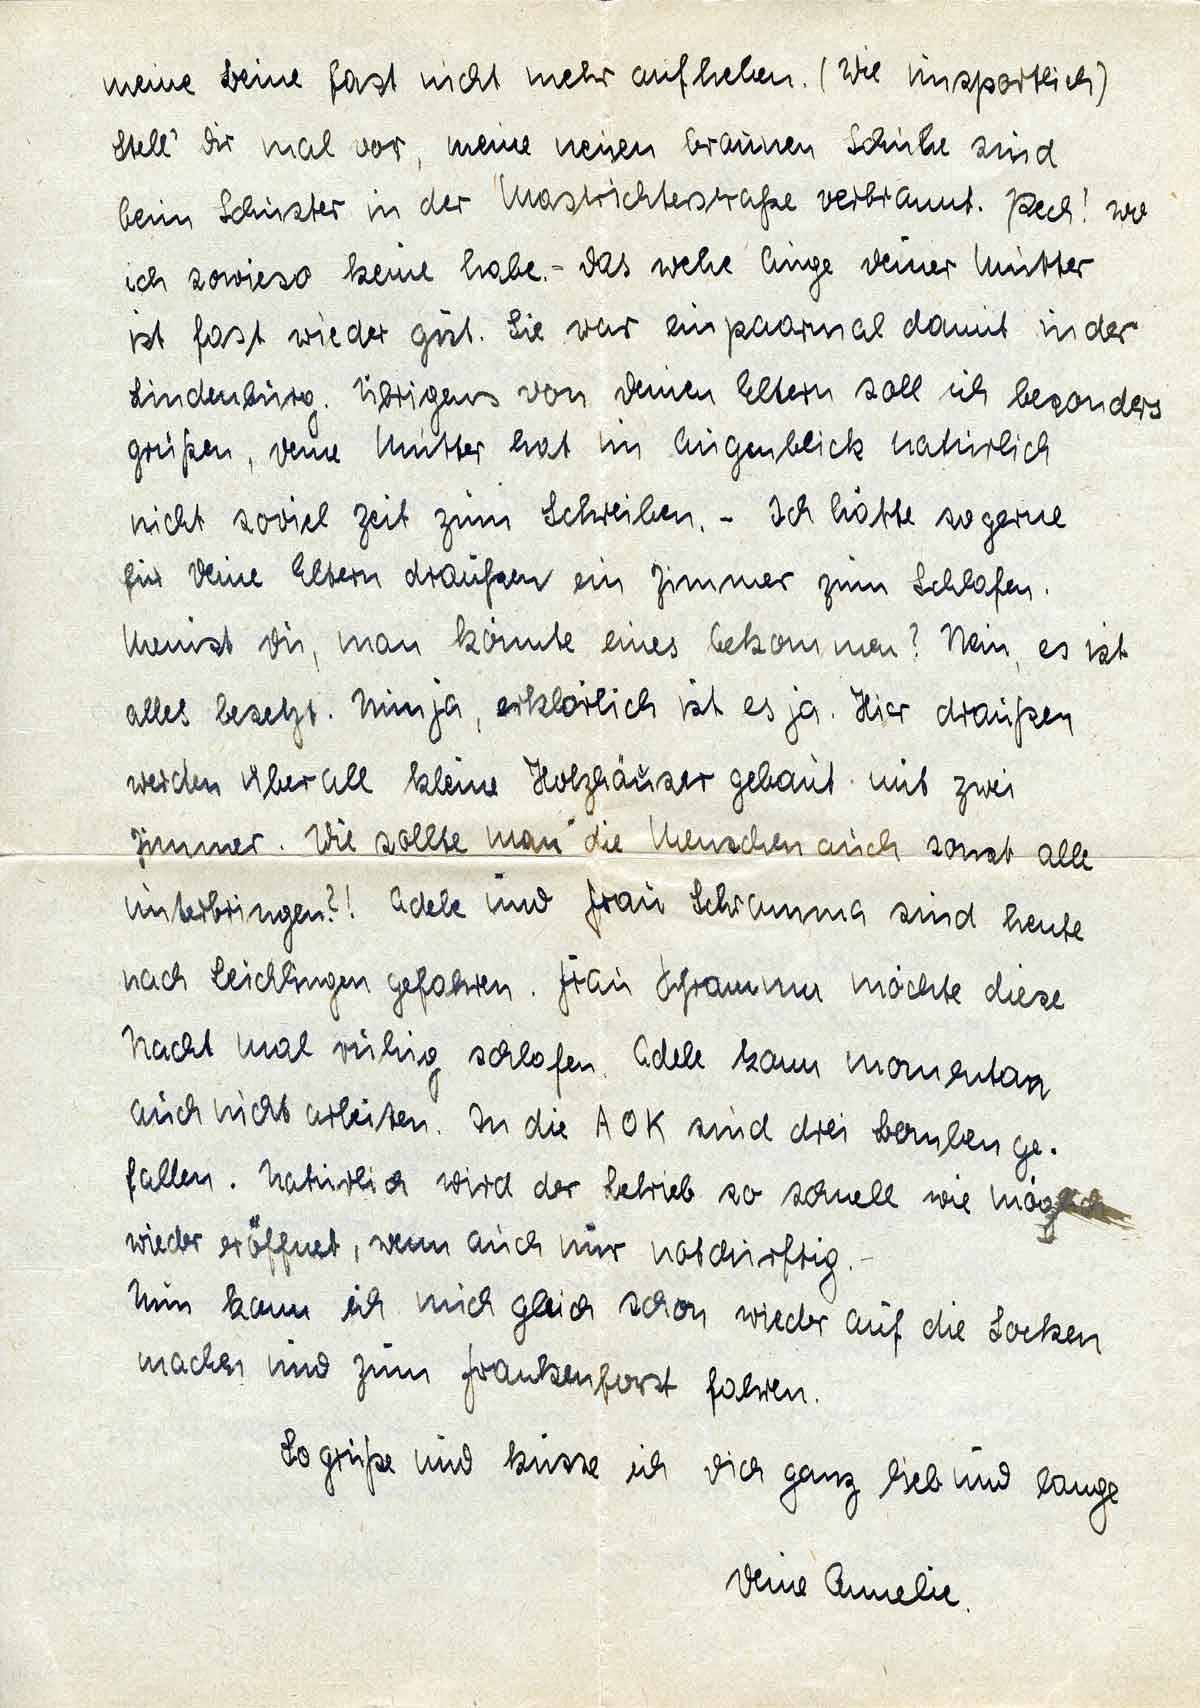 meine Beine fast nicht mehr aufheben. (Wie unsportlich)
Stell' Dir mal vor, meine neuen braunen Schuhe sind
beim Schuster in der Mastrichterstraße verbrannt. Pech! wo
ich sowieso keine habe. – Das wehe Auge Deiner Mutter
ist fast wieder gut. Sie war ein paarmal damit in der
Lindenburg. Übrigens von Deinen Eltern soll ich besonders
grüßen, Deine Mutter hat im Augenblick natürlich
nicht soviel Zeit zum Schreiben. – Ich hätte so gerne
für Deine Eltern draußen ein Zimmer zum Schlafen.
Meinst Du, man könnte eines bekommen? Nein, es ist
alles besetzt. Nun ja, erklärlich ist es ja. Hier draußen
werden überall kleine Holzhäuser gebaut mit zwei
Zimmer. Wie sollte man die Menschen auch sonst alle
unterbringen?! Adele und Frau Schramma sind heute
nach Leichlingen gefahren. Frau Schramma möchte diese
Nacht mal ruhig schlafen. Adele kann momentan
auch nicht arbeiten. In die AOK sind drei Bomben ge-
fallen. Natürlich wird der Betrieb so schnell wie möglich
wieder eröffnet, wenn auch nur notdürftig. –
Nun kann ich mich gleich schon wieder auf die Socken
machen und zum Frankenforst fahren.
So grüße und küsse ich Dich ganz lieb und lange
Deine Annelie.